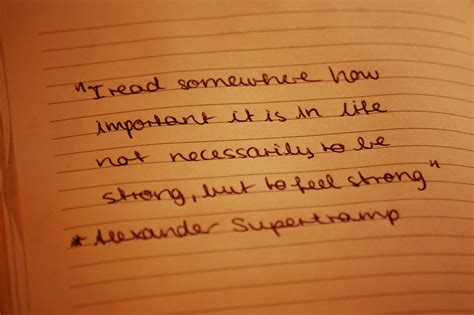 "I read somewhere how
important it is in life
not necessarily to be
strong, but to feel strong"
* Alexander Supertramp